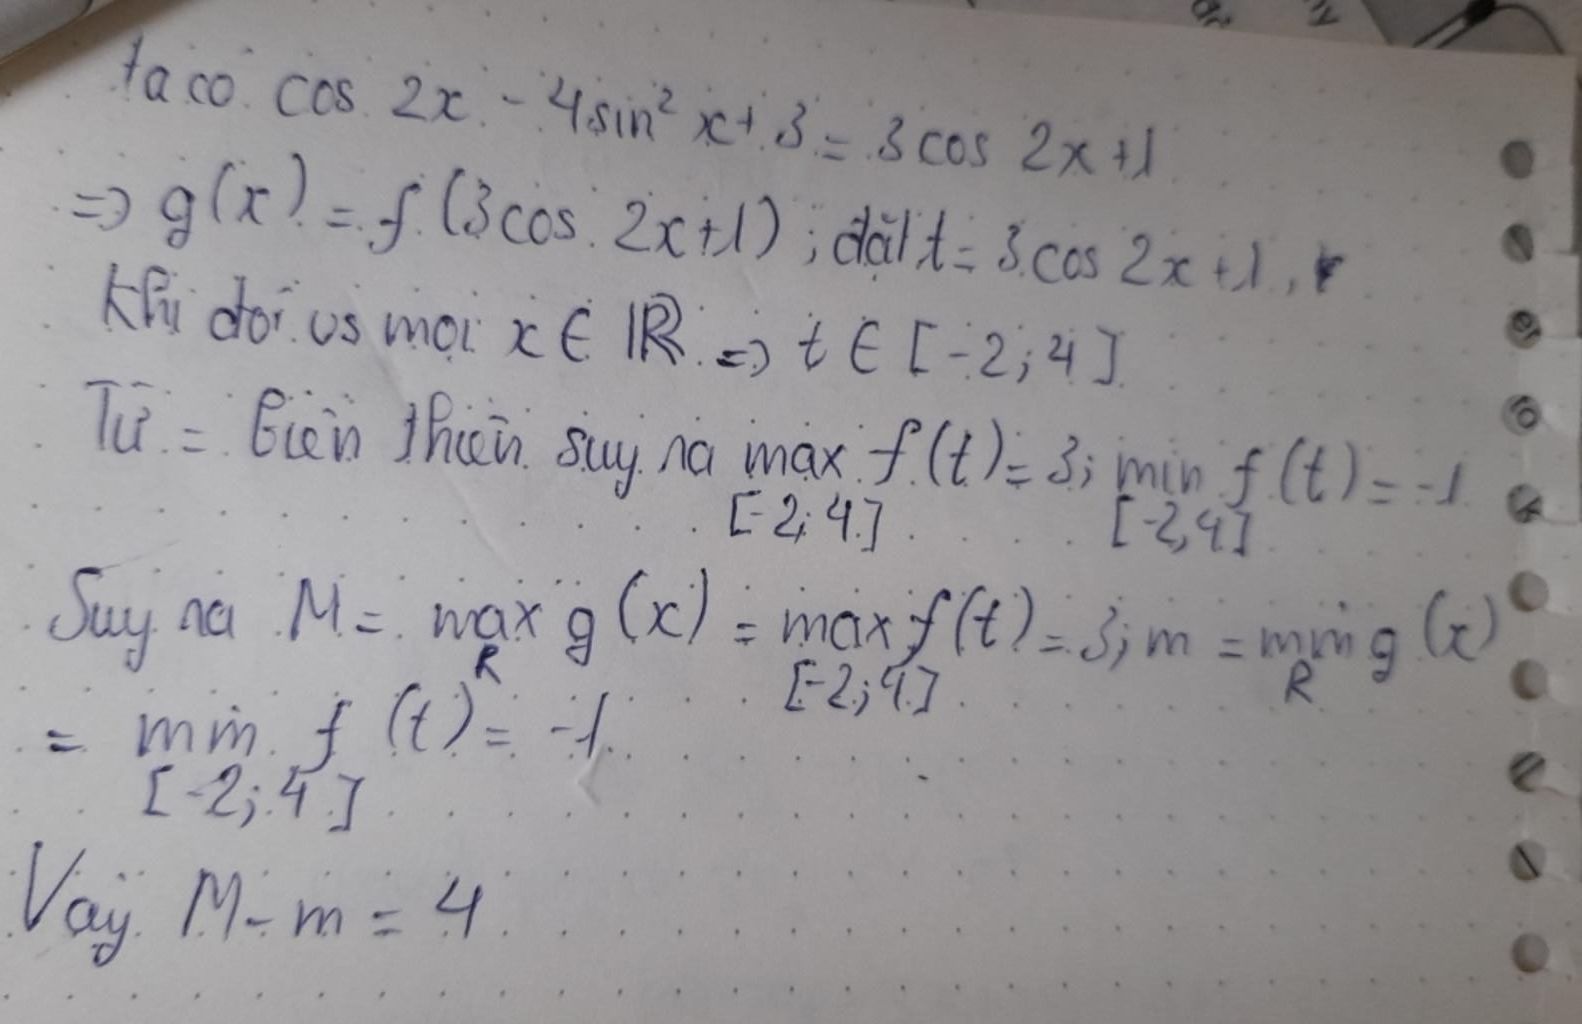 ta có cos 2x - 4sin² x + 3 = 3 cos 2x + 1
=> g(x) = f (3cos 2x+1) ; đặt t = 3 cos 2x + 1,
Khi đối vs mọi x ∈ ℝ => t ∈ [-2; 4]
Từ = biến thiên suy ra max f(t) = 3; min f(t) = -1
[-2; 4] [-2,4]
Suy ra M = max g(x) = max f(t) = 3; m = min g(x)
R [-2; 4] R
= min f(t) = -1
[-2; 4]
Vậy M - m = 4